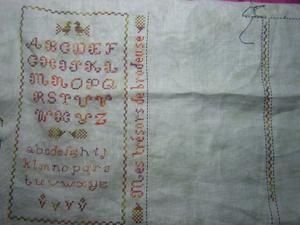 ABCDEF
GHIJKL
MNOPQ
RSTUV
WXYZ
abcdefghij
klmnopqrs
tuvwxyz
Mes trésors de brodeuse